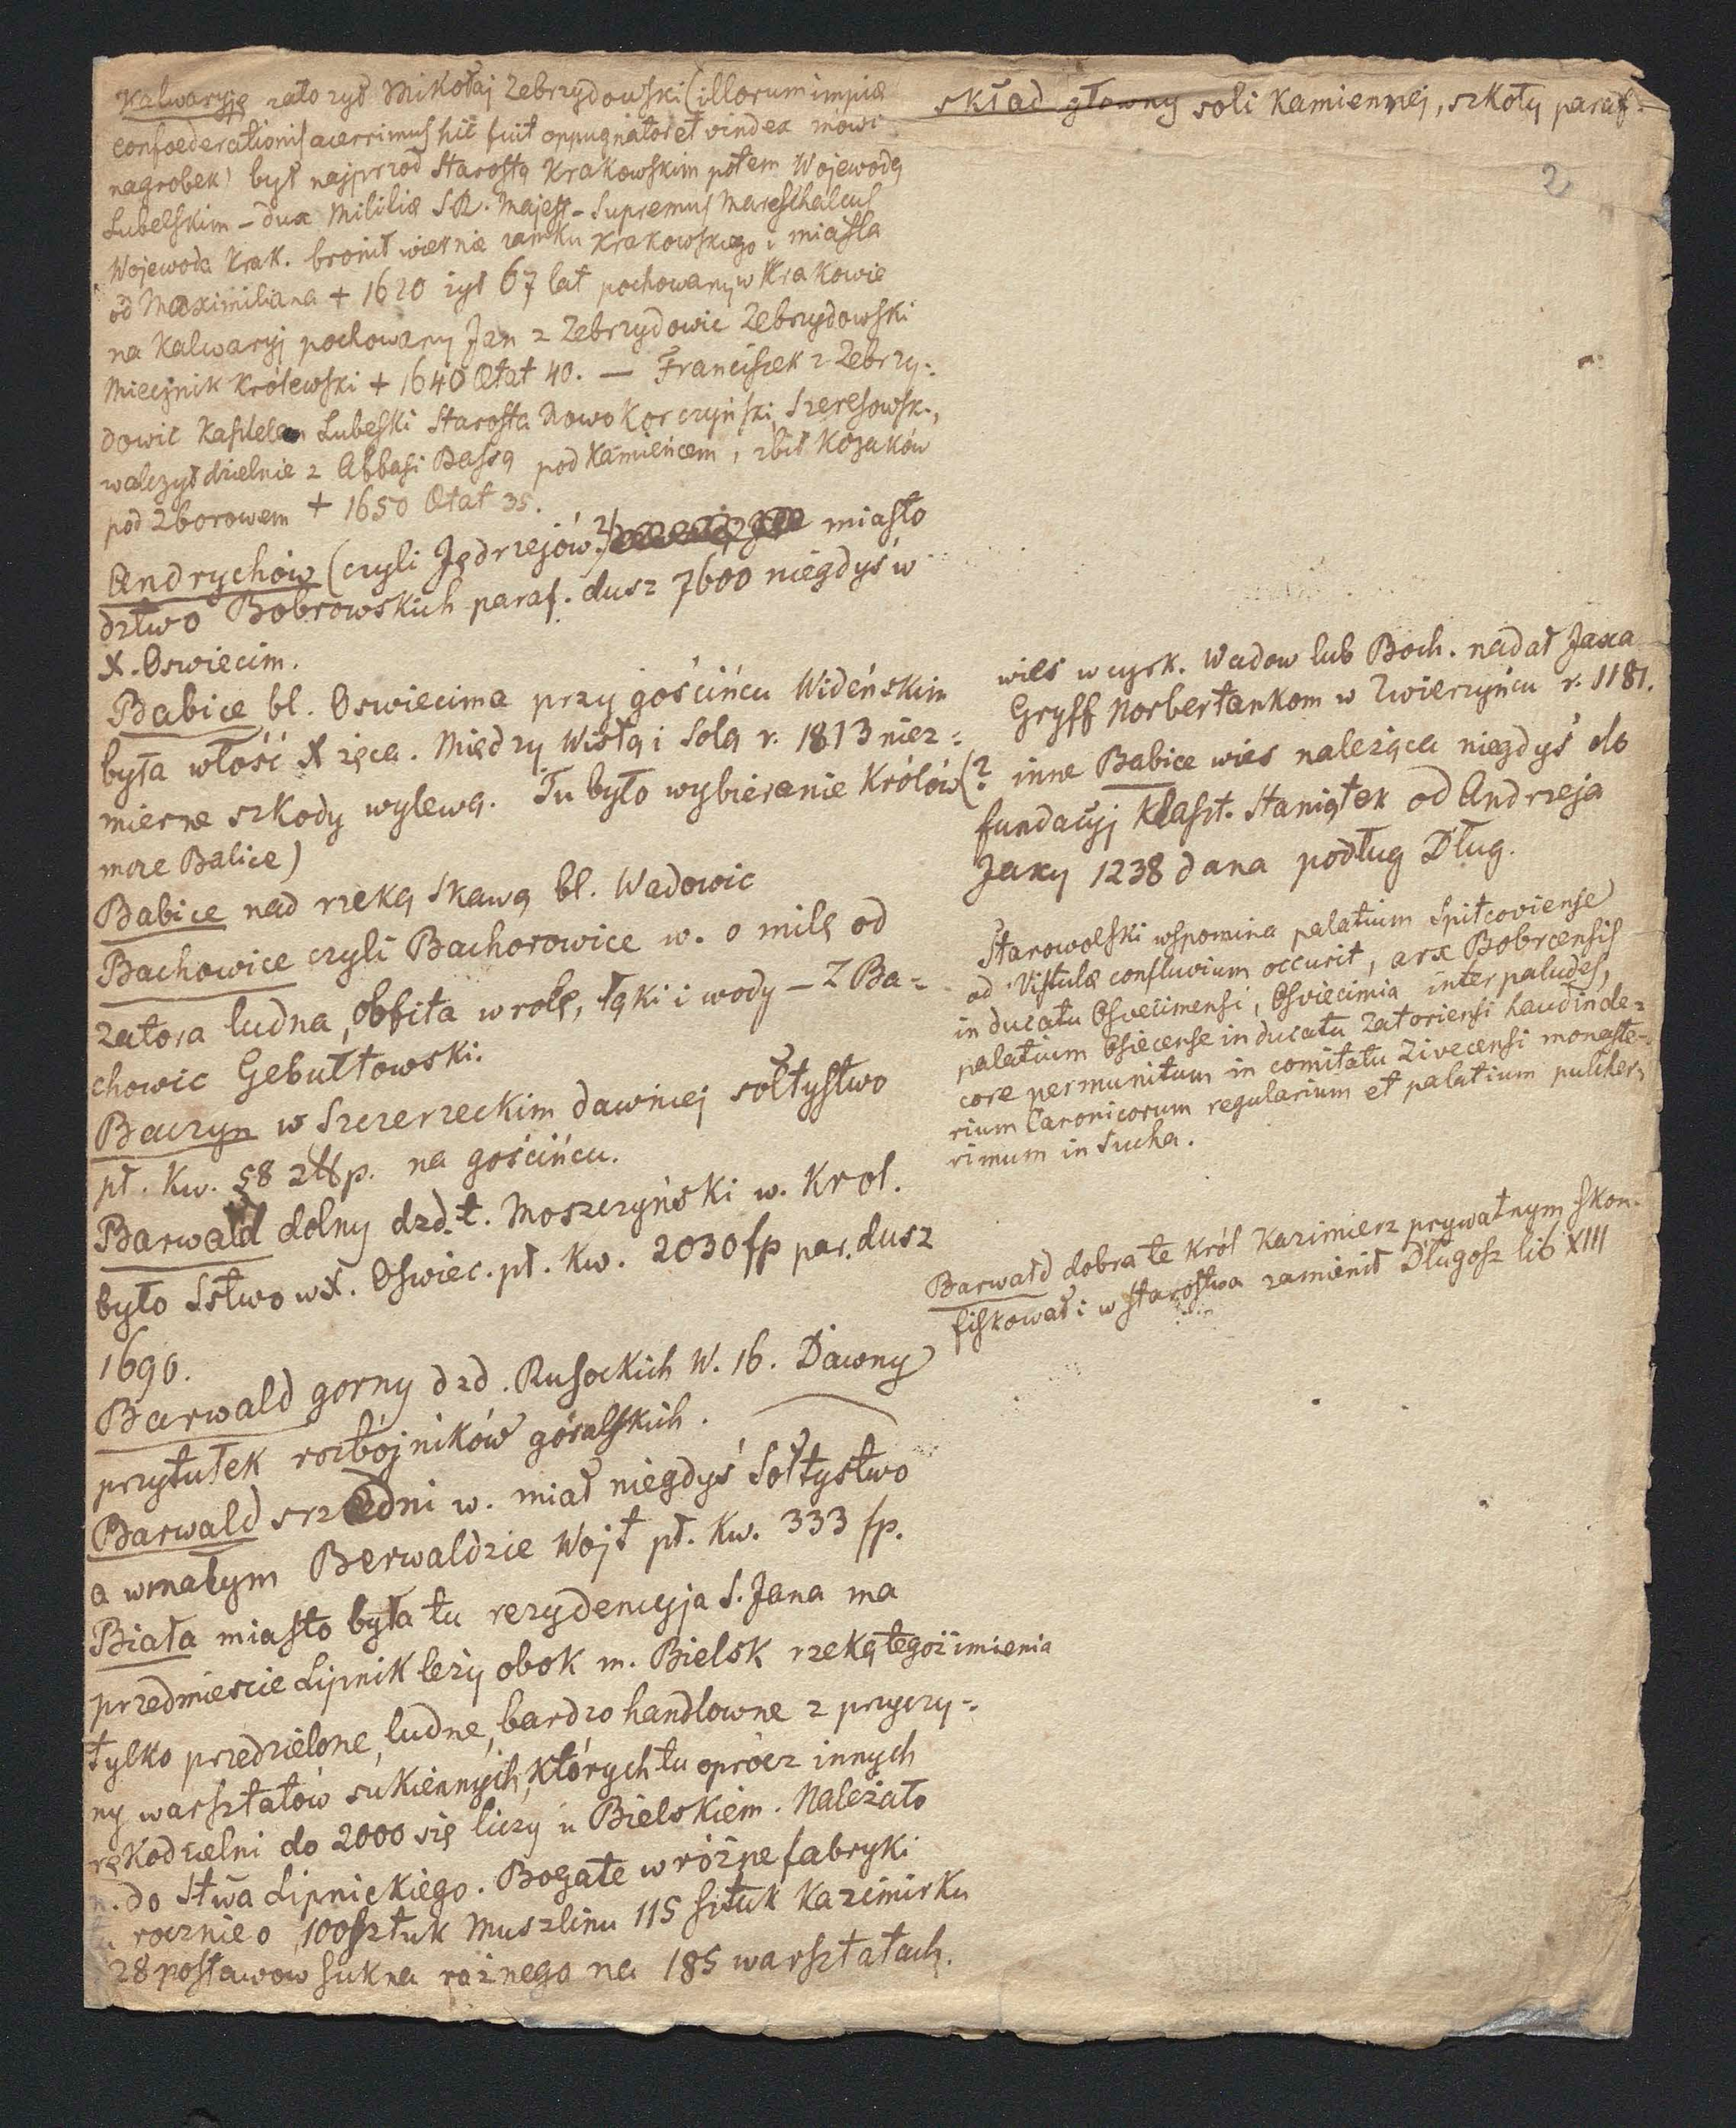 Kalwaryję założył Mikołaj Zebrzydowski (illorum impiæ
confoederationis acerrimus hic fuit oppugnator et vindex mowi
nagrobek) był najprzod Starostą Krakowskim potem Wojewodą
Lubelskim – dux Militiæ S.R. Majest – Supremus Mareschalcus
Wojewoda Krak. bronił wiernie zamku Krakowskiego i miasta
od Maximiliana + 1620 żył 67 lat pochowany w Krakowie
na Kalwaryj pochowany Jan z Zebrzydowic Zebrzydowski
Miecznik Królewski + 1640 Ætat 40. — Franciszek z Zebrzy-
dowic Kasztelan Lubelski Starosta Nowokorczyński, Szeresowsk.,
walczył dzielnie z Abbasi Baszą pod Kamieńcem, zbił Kozaków
pod Zborowem + 1650 Ætat 35.
Andrychów (czyli Jędrzejów?) miasto
dztwo Bobrowskich paraf. dusz 7600 niegdyś w
X. Oswiecim.
Babice bl. Oswiecima przy gościńcu Wideńskim
była włość Xzęca. Między Wisłą i Solą r. 1813 niez=
mierne szkody wylewa. Tu było wybieranie Królów (?
może Balice)
Babice nad rzeką Skawą bl. Wadowic
Bachowice czyli Bachorowice w. o milę od
Zatora ludna, obfita w rolę, łąki i wody – Z Ba=
chowic Gebułtowski.
Baczyn w Szczerzeckim dawniej sołtystwo
pł. Kw. 58 złtp. na gościńcu.
Barwald dolny dzd. t. Moszczyński w. Krol.
było Sstwo w X. Oswiec. pł. Kw. 2030 fp par. dusz
1690.
Barwald gorny dzd. Rusockich W. 16. Dawny
przytułek rozbójników góralskich.
Barwald srzedni w. miał niegdyś Sołtystwo
a w małym Berwaldzie Wojt pł. Kw. 333 fp.
Biała miasto była tu rezydencyja S. Jana ma
przedmiescie Lipnik leży obok m. Bielsk rzeką tegoż imienia
tylko przedzielone, ludne, bardzo handlowne z przyczy-
ny warsztatów sukiennych, których tu oprócz innych
rękodzielni do 2000 się liczy u Bielskiem. Należało
do Stwa Lipnickiego. Bogate w różne fabryki
rocznie o 100 sztuk Muszlinu 115 sztuk Kazimirku
28 postawow sukna rożnego na 185 warsztatach.
skład głowny soli Kamiennej, szkoły paraf.
2
wieś w cyrk. Wadow lub Boch. nadał Jaxa
Gryff Norbertankom w Zwierzyńcu r. 1181.
inne Babice wies należąca niegdyś do
fundacyj Klaszt. Staniątek od Andrzeja
Jaxy 1238 dana podług Dług.
Starowolski wspomina palatium Spitcoviense
ad Vistulæ confluvium occurit, arx Bobrcensis
in ducatu Osvecimensi, Osviecimia inter paludes,
palatium Osiecense in ducatu Zatoriensi haud inde=
core permunitum in comitatu Zivecensi monaste-
rium Canonicorum regularium et palatium pulcher-
rimum in Sucha.
Barwałd dobra te król Kazimierz prywatnym skon-
fiskował i w starostwa zamienił Długosz lib XIII